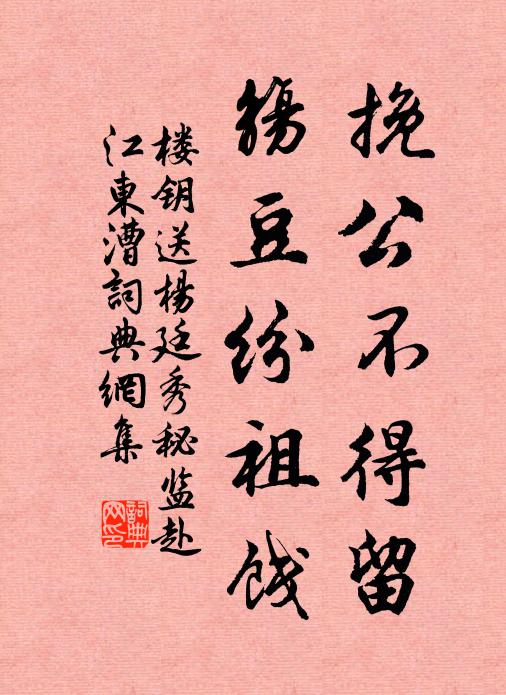 挽公不得留
觴豆纷祖饯
楼钥送楊廷秀秘监赴
江東漕詞典網集
詞典
网印